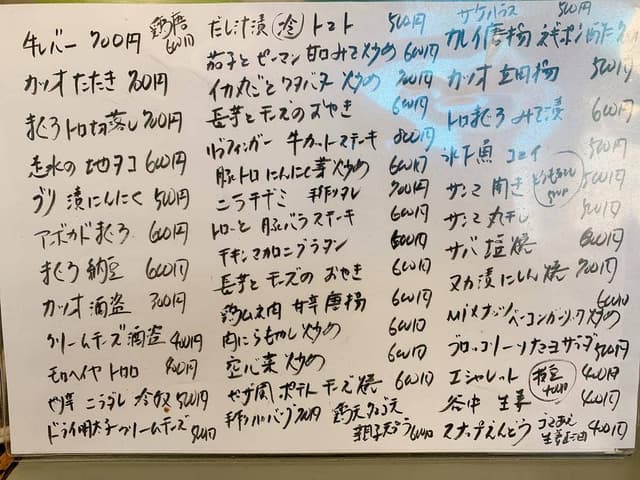 牛レバー 700円
カツオ たたき 700円
まぐろトロ切落し 700円
走水の地ダコ 600円
ブリ 漬にんにく 500円
アボカド まぐろ 600円
まぐろ 納豆 600円
カツオ 酒盗 300円
クリームチーズ酒盗 400円
モロヘイヤ トロロ 400円
ニラダレ 冷奴 500円
ドライ明太子クリームチーズ
だし汁漬 冷 トマト 500円
茄子とピーマン 甘口みそ炒め 600円
イカ丸ごと ワタバタ 炒め 700円
長芋とチーズのおやき 600円
牛カットステーキ 800円
豚トロ にんにく芽 炒め 600円
ニラチヂミ 手作りタレ 700円
豚バラステーキ 600円
チキンマカロニグラタン 600円
長芋とチーズの おやき 600円
鶏ムネ肉 甘辛 唐揚 600円
肉にらもやし炒め 600円
空心菜 炒め 600円
ポテト チーズ焼 600円
手作りハンバーグ 700円
サケハラス 500円
カレイ唐揚 ネギポン酢
カツオ 立田揚 500円
トロまぐろ みそ漬 600円
氷下魚 コマイ 500円
サンマ 開き 500円
とうもろこし
サンマ 丸干し 500円
サバ 塩焼 600円
ヌカ漬にしん 焼 700円
MIXナッツ
ベーコンガーリック炒め 600円
ブロッコリーツナマヨサラダ 500円
エシャレット 400円
枝豆
谷中 生姜 400円
スナップえんどう 400円